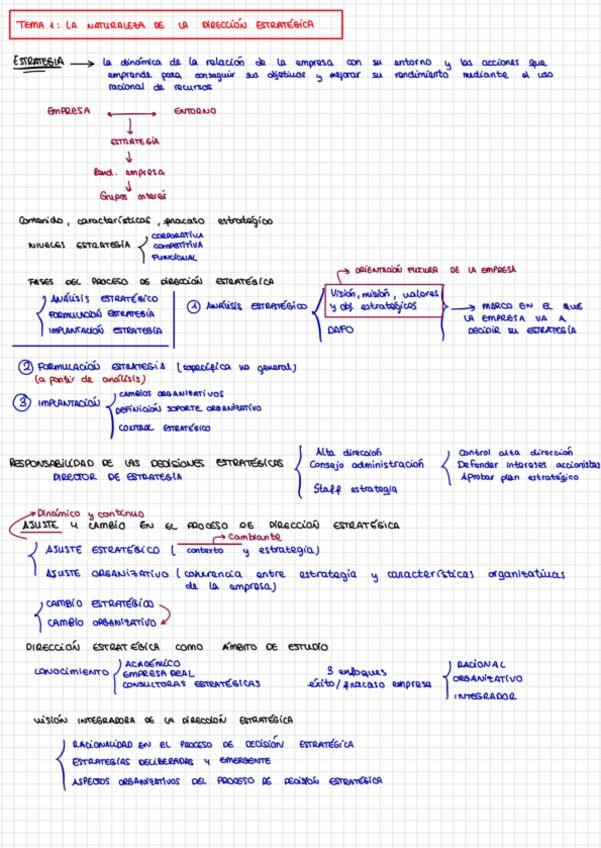 TEMA 1: LA NATURALEZA DE LA DIRECCIÓN ESTRATÉGICA
ESTRATEGIA → la dinámica de la relación de la empresa con su entorno y las acciones que
emprende para conseguir sus objetivos y mejorar su rendimiento mediante el uso
racional de recursos
EMPRESA ↔ ENTORNO
ESTRATEGIA
Rend. empresa
Grupos interés
Contenido, características, fracaso estratégico
NIVELES ESTRATEGIA
CORPORATIVA
COMPETITIVA
FUNCIONAL
FASES DEL PROCESO DE DIRECCIÓN ESTRATÉGICA
ANÁLISIS ESTRATÉGICO
FORMULACIÓN ESTRATEGIA
IMPLANTACIÓN ESTRATEGIA
① ANÁLISIS ESTRATÉGICO
ORIENTACIÓN FUTURA DE LA EMPRESA
Visión, misión, valores
y obj estratégicos
DAFO
MARCO EN EL QUE
LA EMPRESA VA A
DECIDIR SU ESTRATEGIA
② FORMULACIÓN ESTRATEGIA (específica no general)
(a partir de análisis)
③ IMPLANTACIÓN
CAMBIOS ORGANIZATIVOS
DEFINICIÓN SOPORTE ORGANIZATIVO
CONTROL ESTRATÉGICO
RESPONSABILIDAD DE LAS DECISIONES ESTRATÉGICAS
DIRECTOR DE ESTRATEGIA
Alta dirección
Consejo administración
Staff estrategia
Control alta dirección
Defender intereses accionistas
Aprobar plan estratégico
Dinámico y continuo
AJUSTE Y CAMBIO EN EL PROCESO DE DIRECCIÓN ESTRATÉGICA
Cambiante
AJUSTE ESTRATÉGICO (contexto y estrategia)
AJUSTE ORGANIZATIVO (coherencia entre estrategia y características organizativas
de la empresa)
CAMBIO ESTRATÉGICO
CAMBIO ORGANIZATIVO
DIRECCIÓN ESTRATÉGICA COMO ÁMBITO DE ESTUDIO
CONOCIMIENTO
ACADÉMICO
EMPRESA REAL
CONSULTORAS ESTRATÉGICAS
3 enfoques
éxito/fracaso empresa
RACIONAL
ORGANIZATIVO
INTEGRADOR
VISIÓN INTEGRADORA DE LA DIRECCIÓN ESTRATÉGICA
RACIONALIDAD EN EL PROCESO DE DECISIÓN ESTRATÉGICA
ESTRATEGIAS DELIBERADAS Y EMERGENTE
ASPECTOS ORGANIZATIVOS DEL PROCESO DE DECISIÓN ESTRATÉGICA